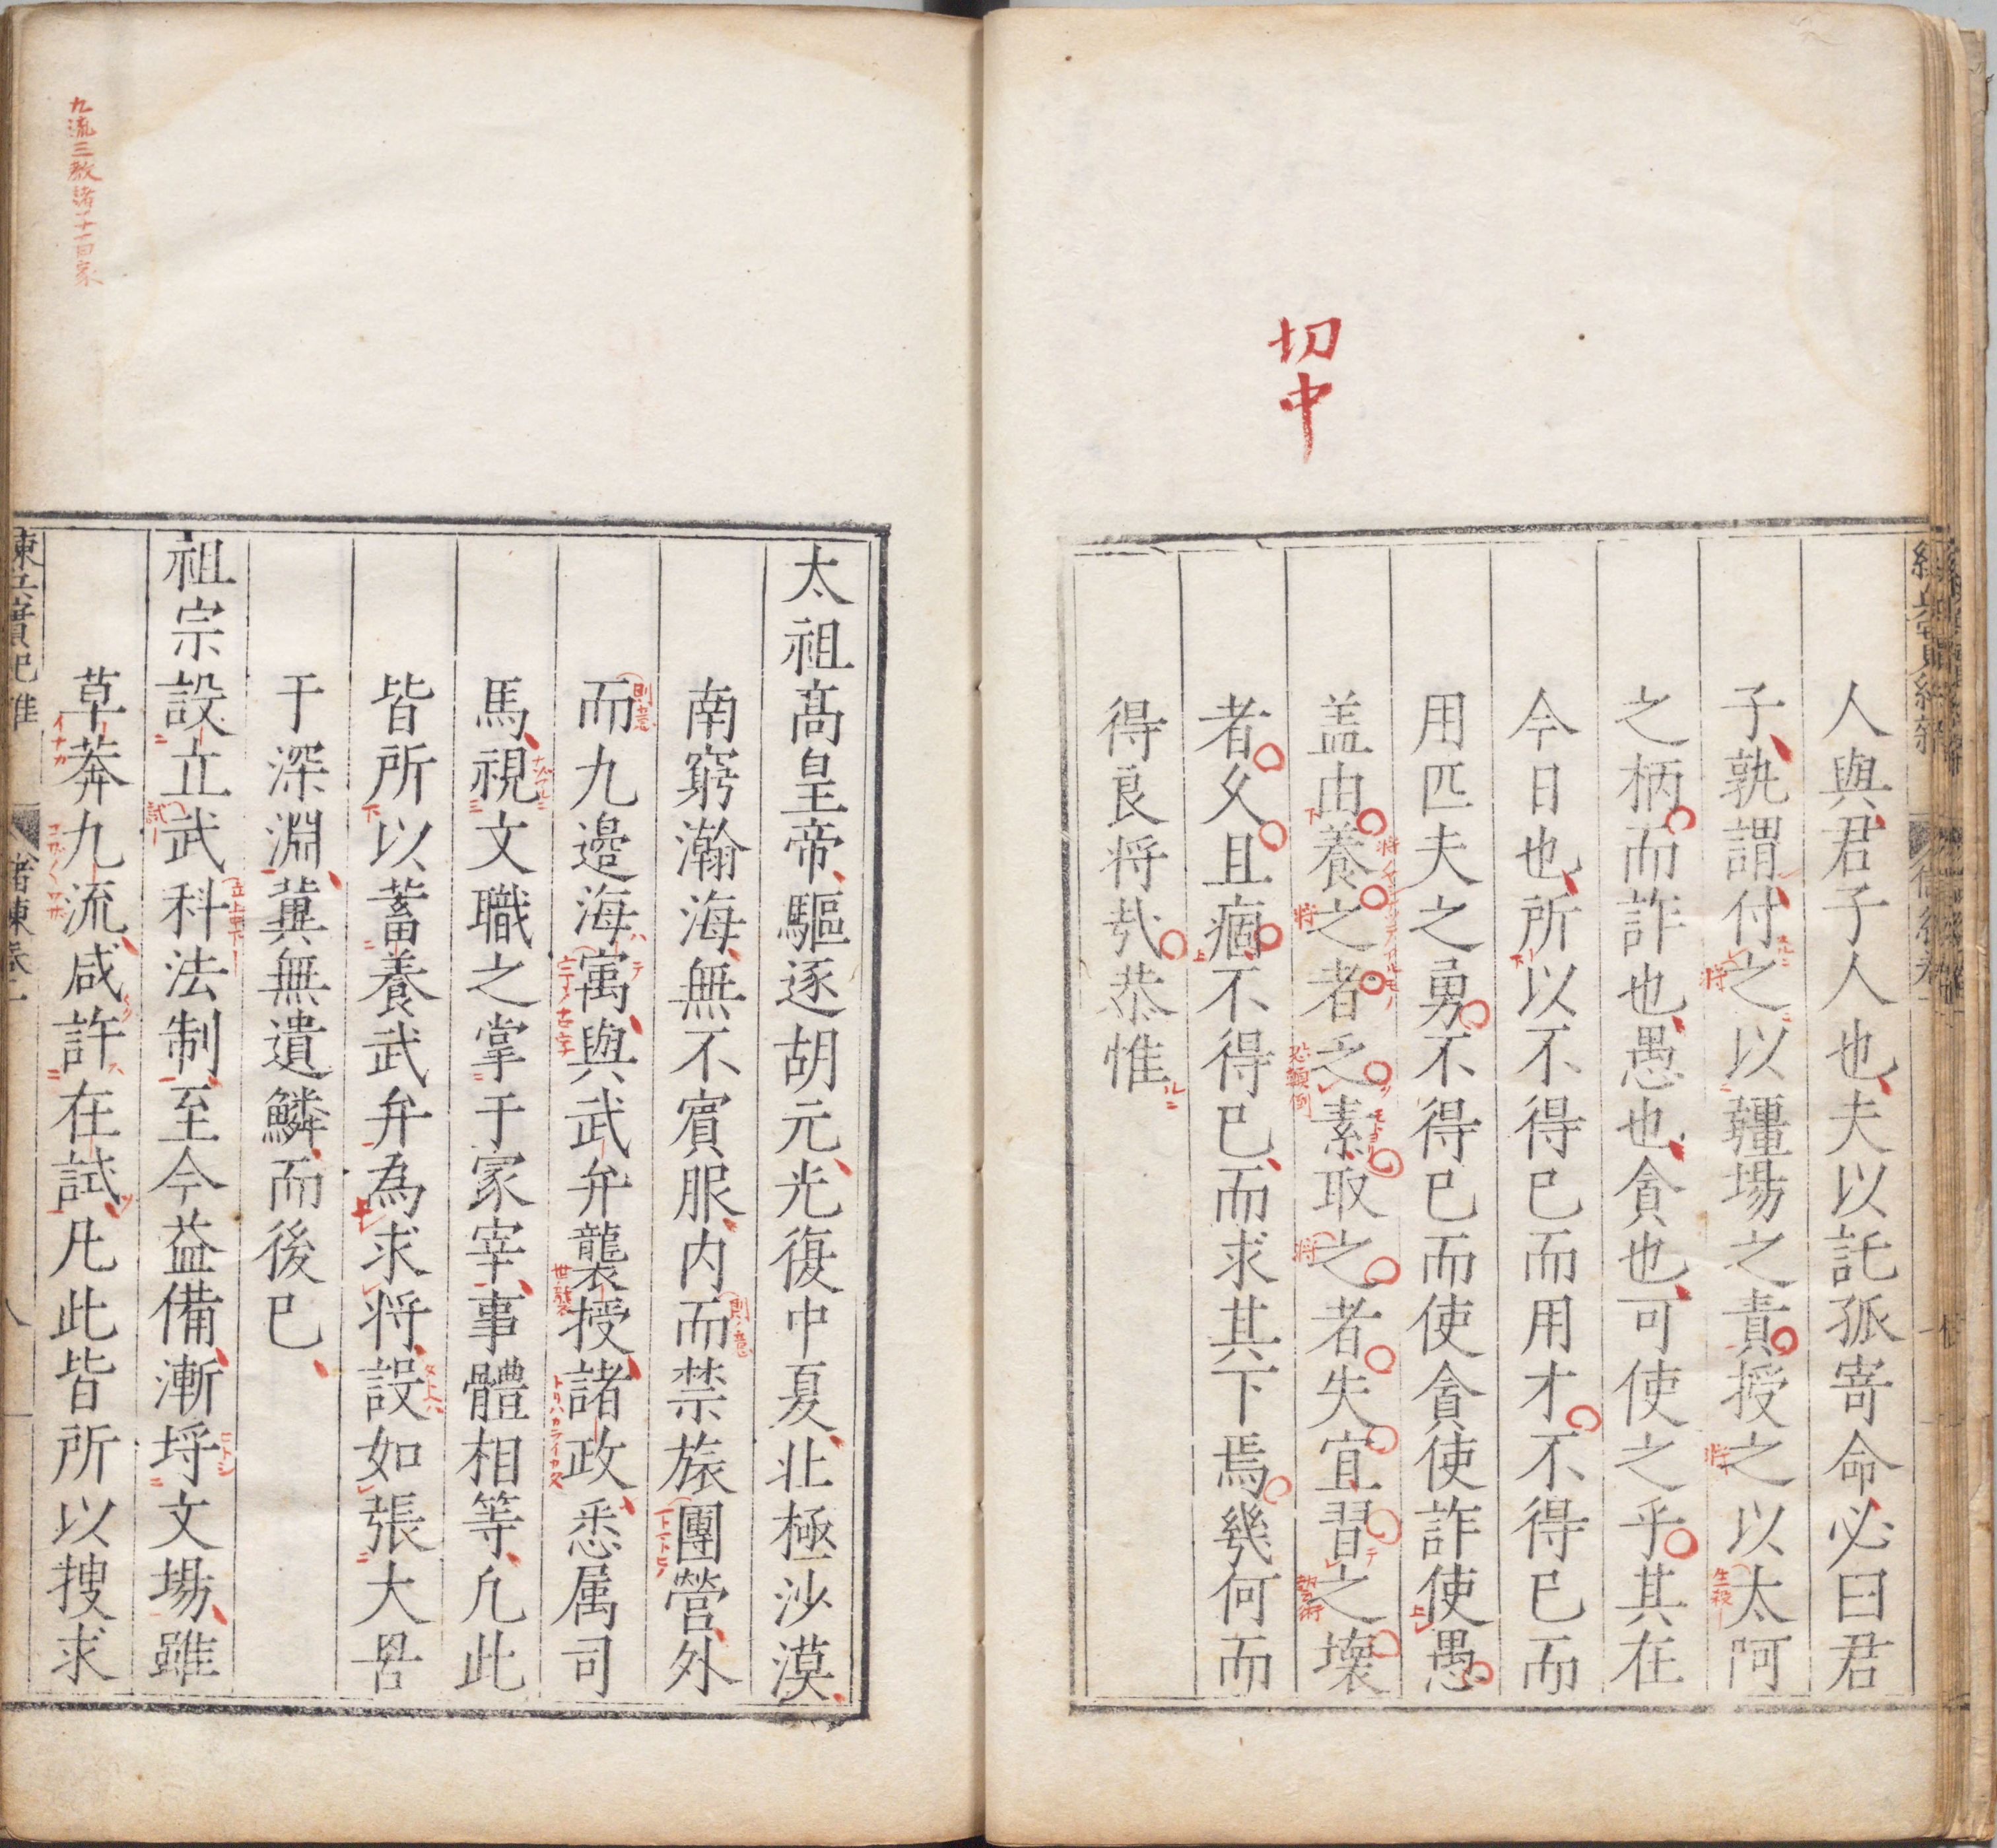 切中
人與君子人也夫以託孤寄命必曰君
子孰謂付之以疆場之責授之以太阿
之柄而詐也愚也貪也可使之乎其在
今日也所以不得已而用才不得已而
用匹夫之勇不得已而使貪使詐使愚
盖由養之者乏素取之者失宜習之壞
者久且痼不得已而求其下焉幾何而
得良将㢤恭惟
太祖髙皇帝驅逐胡元光復中夏北極沙漠
南窮瀚海無不賓服内而禁旅團營外
而九邉海㝢與武弁襲授諸政悉属司
馬視文職之掌于冡宰事體相等凢此
皆所以蓄養武弁為求将設如張大罟
于深淵冀無遺鱗而後已
祖宗設立武科法制至今益備漸埒文場雖
草莽九流咸許在試凢此皆所以搜求
九流三教
則ノ意
世襲
恐顛倒
将
将
将
将
生殺